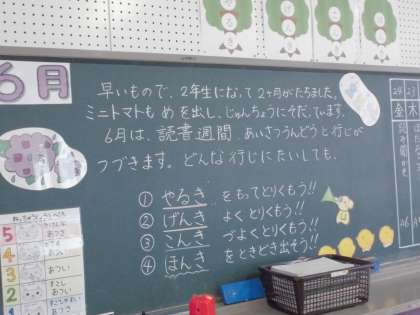 6月
早いもので、2年生になって2ヶ月がたちました。
ミニトマトも めを出し、じゅんちょうにそだっています。
6月は、読書週間、あいさつうんどうと行じが
つづきます。どんな行じにたいしても、
① やるき をもってとりくもう!!
② げんき よくとりくもう!!
③ こんき づよくとりくもう!!
④ ほんき をときどき出そう!!
24 23
金 木
5
4
3
2
1